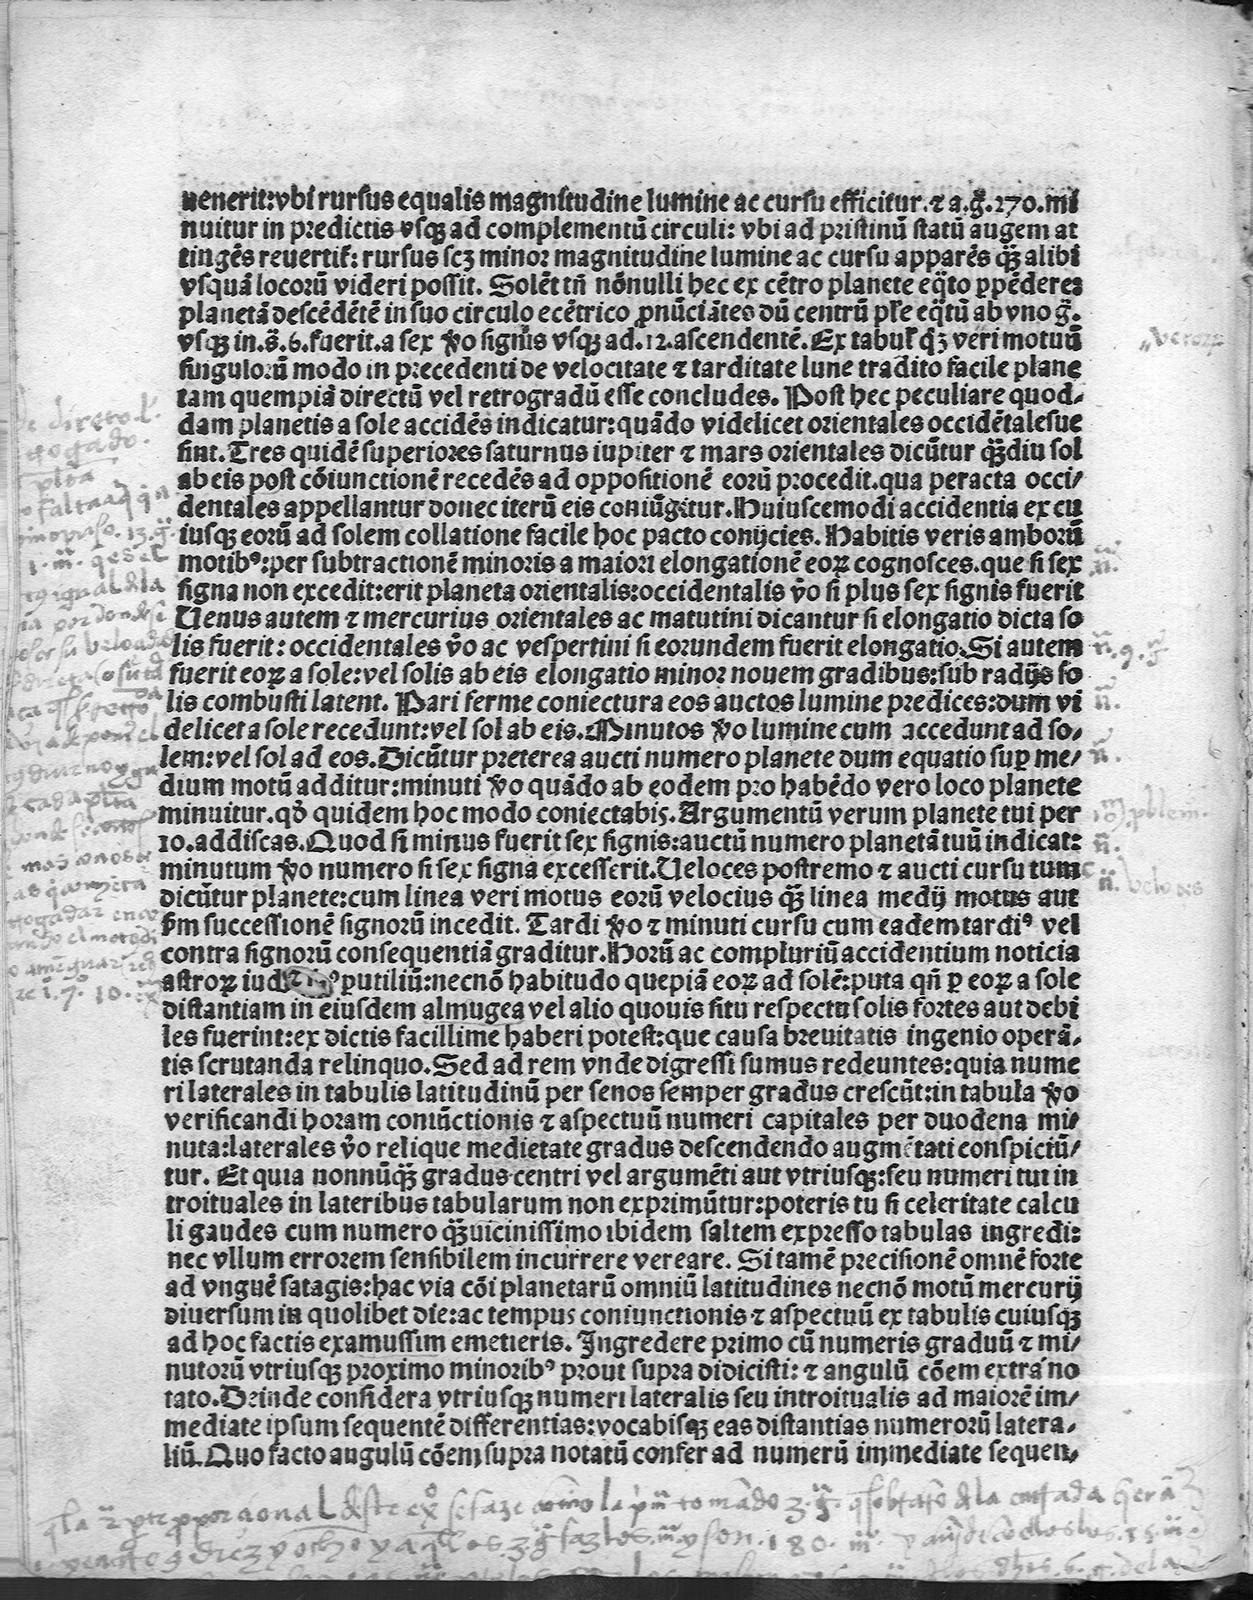 uenerit:vbi rursus equalis magnitudine lumine ac cursu efficitur. ⁊ a.g̃.270.mi
nuitur in predictis vsqꝫ ad complementũ circuli: vbi ad pristinũ statũ augem at
tingẽs reuertit̃: rursus scꝫ minor magnitudine lumine ac cursu apparẽs qꝫ̃ alibi
vsquã locorũ videri possit. Solẽt tñ nõnulli hec ex cẽtro planete eq̃to ꝑpẽdere:
planetã descẽdẽtẽ in suo circulo ecẽtrico ꝓnũciãtes dũ centrũ pl̃e eq̃tũ ab vno g̃.
vsqꝫ in.s̃.6.fuerit.a sex ṽo signis vsqꝫ ad.12.ascendentẽ. Ex tabul̃ q̃ꝫ veri motuũ
singulorũ modo in precedenti de velocitate ⁊ tarditate lune tradito facile plane
tam quempiã directũ vel retrogradũ esse concludes. Post hec peculiare quod-
dam planetis a sole accidẽs indicatur:quãdo videlicet orientales occidẽtalesue
sint. Tres quidẽ superiores saturnus iupiter ⁊ mars orientales dicũtur qꝫ̃diu sol
ab eis post cõiunctionẽ recedẽs ad oppositionẽ eorũ procedit.qua peracta occi/
dentales appellantur donec iterũ eis coniũgitur. Huiuscemodi accidentia ex cu
iusqꝫ eorũ ad solem collatione facile hoc pacto conijcies. Habitis veris amborũ
motibꝰ:per subtractionẽ minoris a maiori elongationẽ eoꝝ cognosces.que si sex
signa non excedit:erit planeta orientalis:occidentalis ṽo si plus sex signis fuerit
Uenus autem ⁊ mercurius orientales ac matutini dicantur si elongatio dicta so
lis fuerit: occidentales ṽo ac vespertini si eorundem fuerit elongatio. Si autem
fuerit eoꝝ a sole:vel solis ab eis elongatio minor nouem gradibus:sub radijs so
lis combusti latent. Pari ferme coniectura eos auctos lumine predices:dum vi
delicet a sole recedunt:vel sol ab eis. Minutos ṽo lumine cum accedunt ad so/
lem:vel sol ad eos. Dicũtur preterea aucti numero planete dum equatio suꝑ me/
dium motũ additur:minuti ṽo quãdo ab eodem pro habẽdo vero loco planete
minuitur.qđ quidem hoc modo coniectabis. Argumentũ verum planete tui per
10.addiscas. Quod si minus fuerit sex signis:auctũ numero planetã tuũ indicat:
minutum ṽo numero si sex signa excesserit. Ueloces postremo ⁊ aucti cursu tum
dicũtur planete:cum linea veri motus eorũ velocius qꝫ̃ linea medij motus aut
sm̃ successionẽ signorũ incedit. Tardi ṽo ⁊ minuti cursu cum eadem tardiꝰ vel
contra signorũ consequentiã graditur. Horũ ac compluriũ accidentium noticia
astroꝝ iud putiliũ:necnõ habitudo quepiã eoꝝ ad solẽ:puta qñ ꝑ eoꝝ a sole
distantiam in eiusdem almugea vel alio quouis situ respectu solis fortes aut debi
les fuerint:ex dictis facillime haberi potest:que causa breuitatis ingenio operã-
tis scrutanda relinquo. Sed ad rem vnde digressi sumus redeuntes:quia nume
ri laterales in tabulis latitudinũ per senos semper gradus crescũt:in tabula ṽo
verificandi horam coniũctionis ⁊ aspectuũ numeri capitales per duodena mi/
nuta:laterales ṽo relique medietate gradus descendendo augmẽtati conspiciũ/
tur. Et quia nonnũqꝫ̃ gradus centri vel argumẽti aut vtriusqꝫ:seu numeri tui in
troituales in lateribus tabularum non exprimũtur:poteris tu si celeritate calcu
li gaudes cum numero qꝫ̃uicinissimo ibidem saltem expresso tabulas ingredi:
nec vllum errorem sensibilem incurrere vereare. Si tamẽ precisionẽ omnẽ forte
ad vnguẽ satagis:hac via cõi planetarũ omniũ latitudines necnõ motũ mercurij
diuersum in quolibet die:ac tempus coniunctionis ⁊ aspectuũ ex tabulis cuiusqꝫ
ad hoc factis examussim emetieris. Ingredere primo cũ numeris graduũ ⁊ mi/
nutorũ vtriusqꝫ proximo minoribꝰ prout supra didicisti: ⁊ angulũ cõem extra no
tato. Deinde considera vtriusqꝫ numeri lateralis seu introitualis ad maiorẽ im/
mediate ipsum sequentẽ differentias:vocabisqꝫ eas distantias numerorũ latera-
liũ. Quo facto angulũ cõem supra notatũ confer ad numerũ immediate sequen-